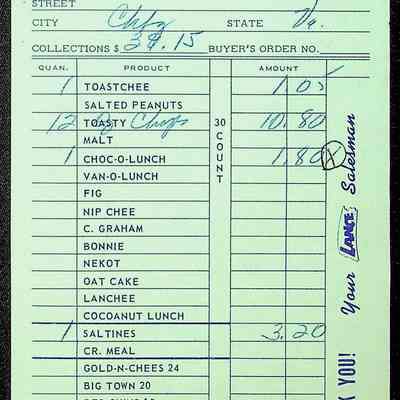 STREET
CITY Chfx STATE Va.
COLLECTIONS $ 39.15 BUYER'S ORDER NO.
QUAN. PRODUCT AMOUNT
1 TOASTCHEE 1.05
SALTED PEANUTS
12 TOASTY Chips 10.80
MALT
1 CHOC-O-LUNCH 1.80 X
VAN-O-LUNCH
FIG
NIP CHEE
C. GRAHAM
BONNIE
NEKOT
OAT CAKE
LANCHEE
COCOANUT LUNCH
1 SALTINES 3.20
CR. MEAL
GOLD-N-CHEES 24
BIG TOWN 20
30 COUNT
YOU! Your LANCE Salesman